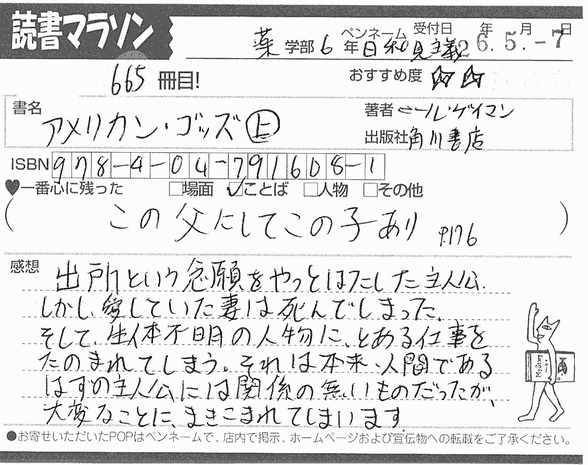 読書マラソン
薬 学部 6 年 ペンネーム 日和見主義 受付日 26.5.-7 年 月 日
665 冊目! おすすめ度 ☆☆
書名 アメリカン・ゴッズ(上) 著者 ニール・ゲイマン
出版社 角川書店
ISBN 978-4-04-791608-1
♥一番心に残った □場面 ☑ことば □人物 □その他
(この父にしてこの子あり P.176)
感想
出所という念願をやっとはたした主人公。
しかし、愛していた妻は死んでしまった。
そして、正体不明の人物に、とある仕事を
たのまれてしまう。それは本来、人間である
はずの主人公には関係の無いものだったが、
大変なことに、まきこまれてしまいます
●お寄せいただいたPOPはペンネームで、店内で掲示、ホームページおよび宣伝物への転載をご了承ください。